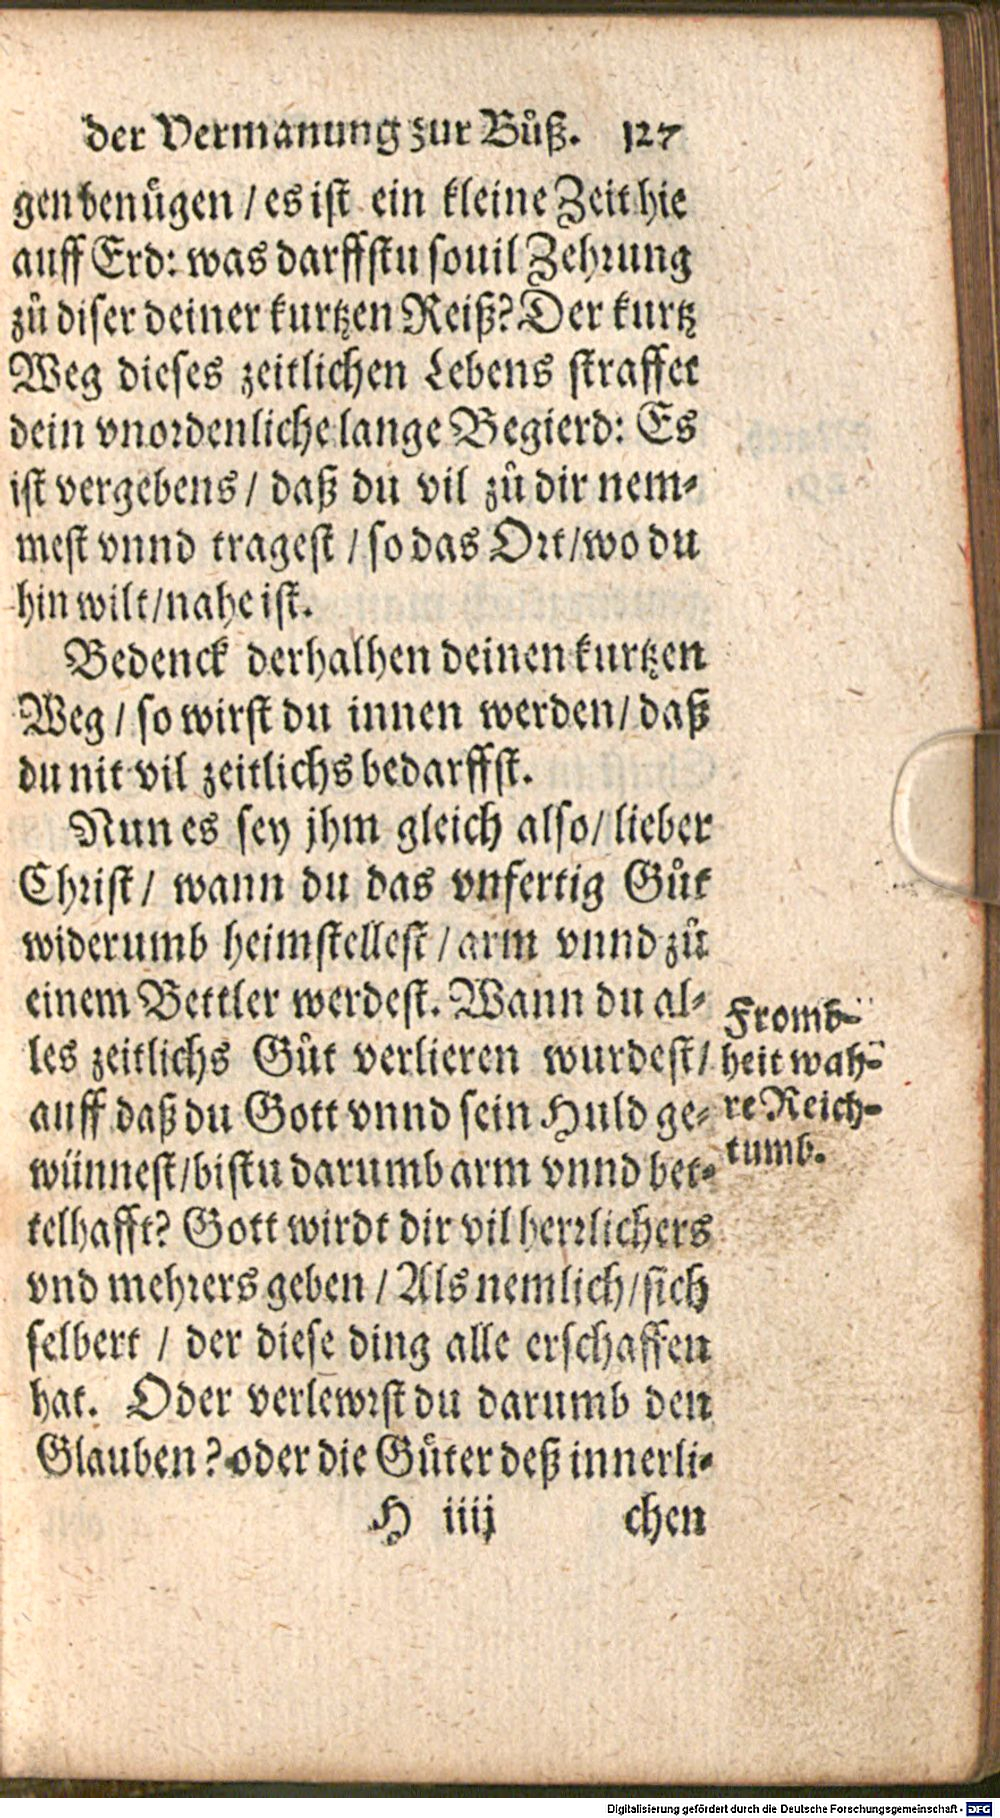 der Vermanung zur Bůß. 127
gen benügen / es ist ein kleine Zeit hie
auff Erd: was darffstu souil Zehrung
zů diser deiner kurtzen Reiß? Der kurtz
Weg dieses zeitlichen Lebens straffet
dein vnordenliche lange Begierd: Es
ist vergebens / daß du vil zů dir nem-
mest vnnd tragest / so das Ort / wo du
hin wilt / nahe ist.
Bedenck derhalhen deinen kurtzen
Weg / so wirst du innen werden / daß
du nit vil zeitlichs bedarffst.
Nun es sey jhm gleich also / lieber
Christ / wann du das vnfertig Gůt
widerumb heimstellest / arm vnnd zů
einem Bettler werdest. Wann du al-
les zeitlichs Gůt verlieren wurdest /
auff daß du Gott vnnd sein Huld ge-
wünnest / bistu darumb arm vnnd bet-
telhafft? Gott wirdt dir vil herrlichers
vnd mehrers geben / Als nemlich / sich
selbert / der diese ding alle erschaffen
hat. Oder verlewrst du darumb den
Glauben? oder die Gůter deß innerli-
H iiij chen
Fromb-
heit wah-
re Reich-
tumb.
Digitalisierung gefördert durch die Deutsche Forschungsgemeinschaft - DFG